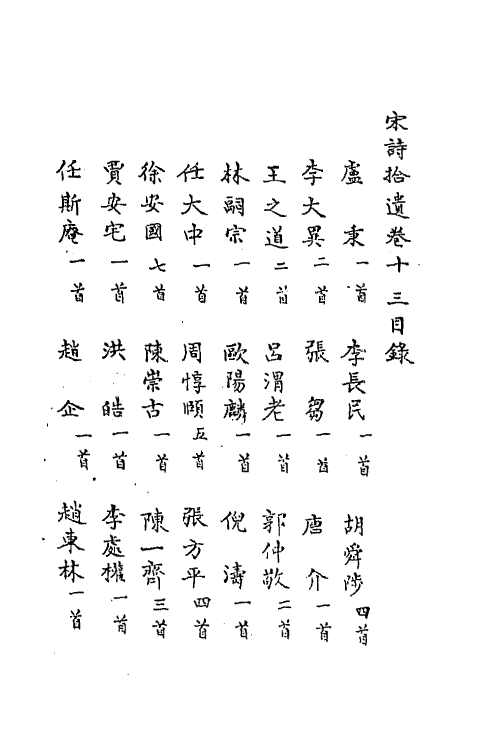 宋詩拾遺卷十三目錄
盧秉一首 李長民一首 胡舜陟四首
李大異二首 張芻一首 唐介一首
王之道二首 呂渭老一首 郭仲敬二首
林嗣宗一首 歐陽麟一首 倪濤一首
任大中一首 周惇頤五首 張方平四首
徐安國七首 陳崇古一首 陳一齊三首
賈安宅一首 洪皓一首 李處權一首
任斯庵一首 趙企一首 趙東林一首